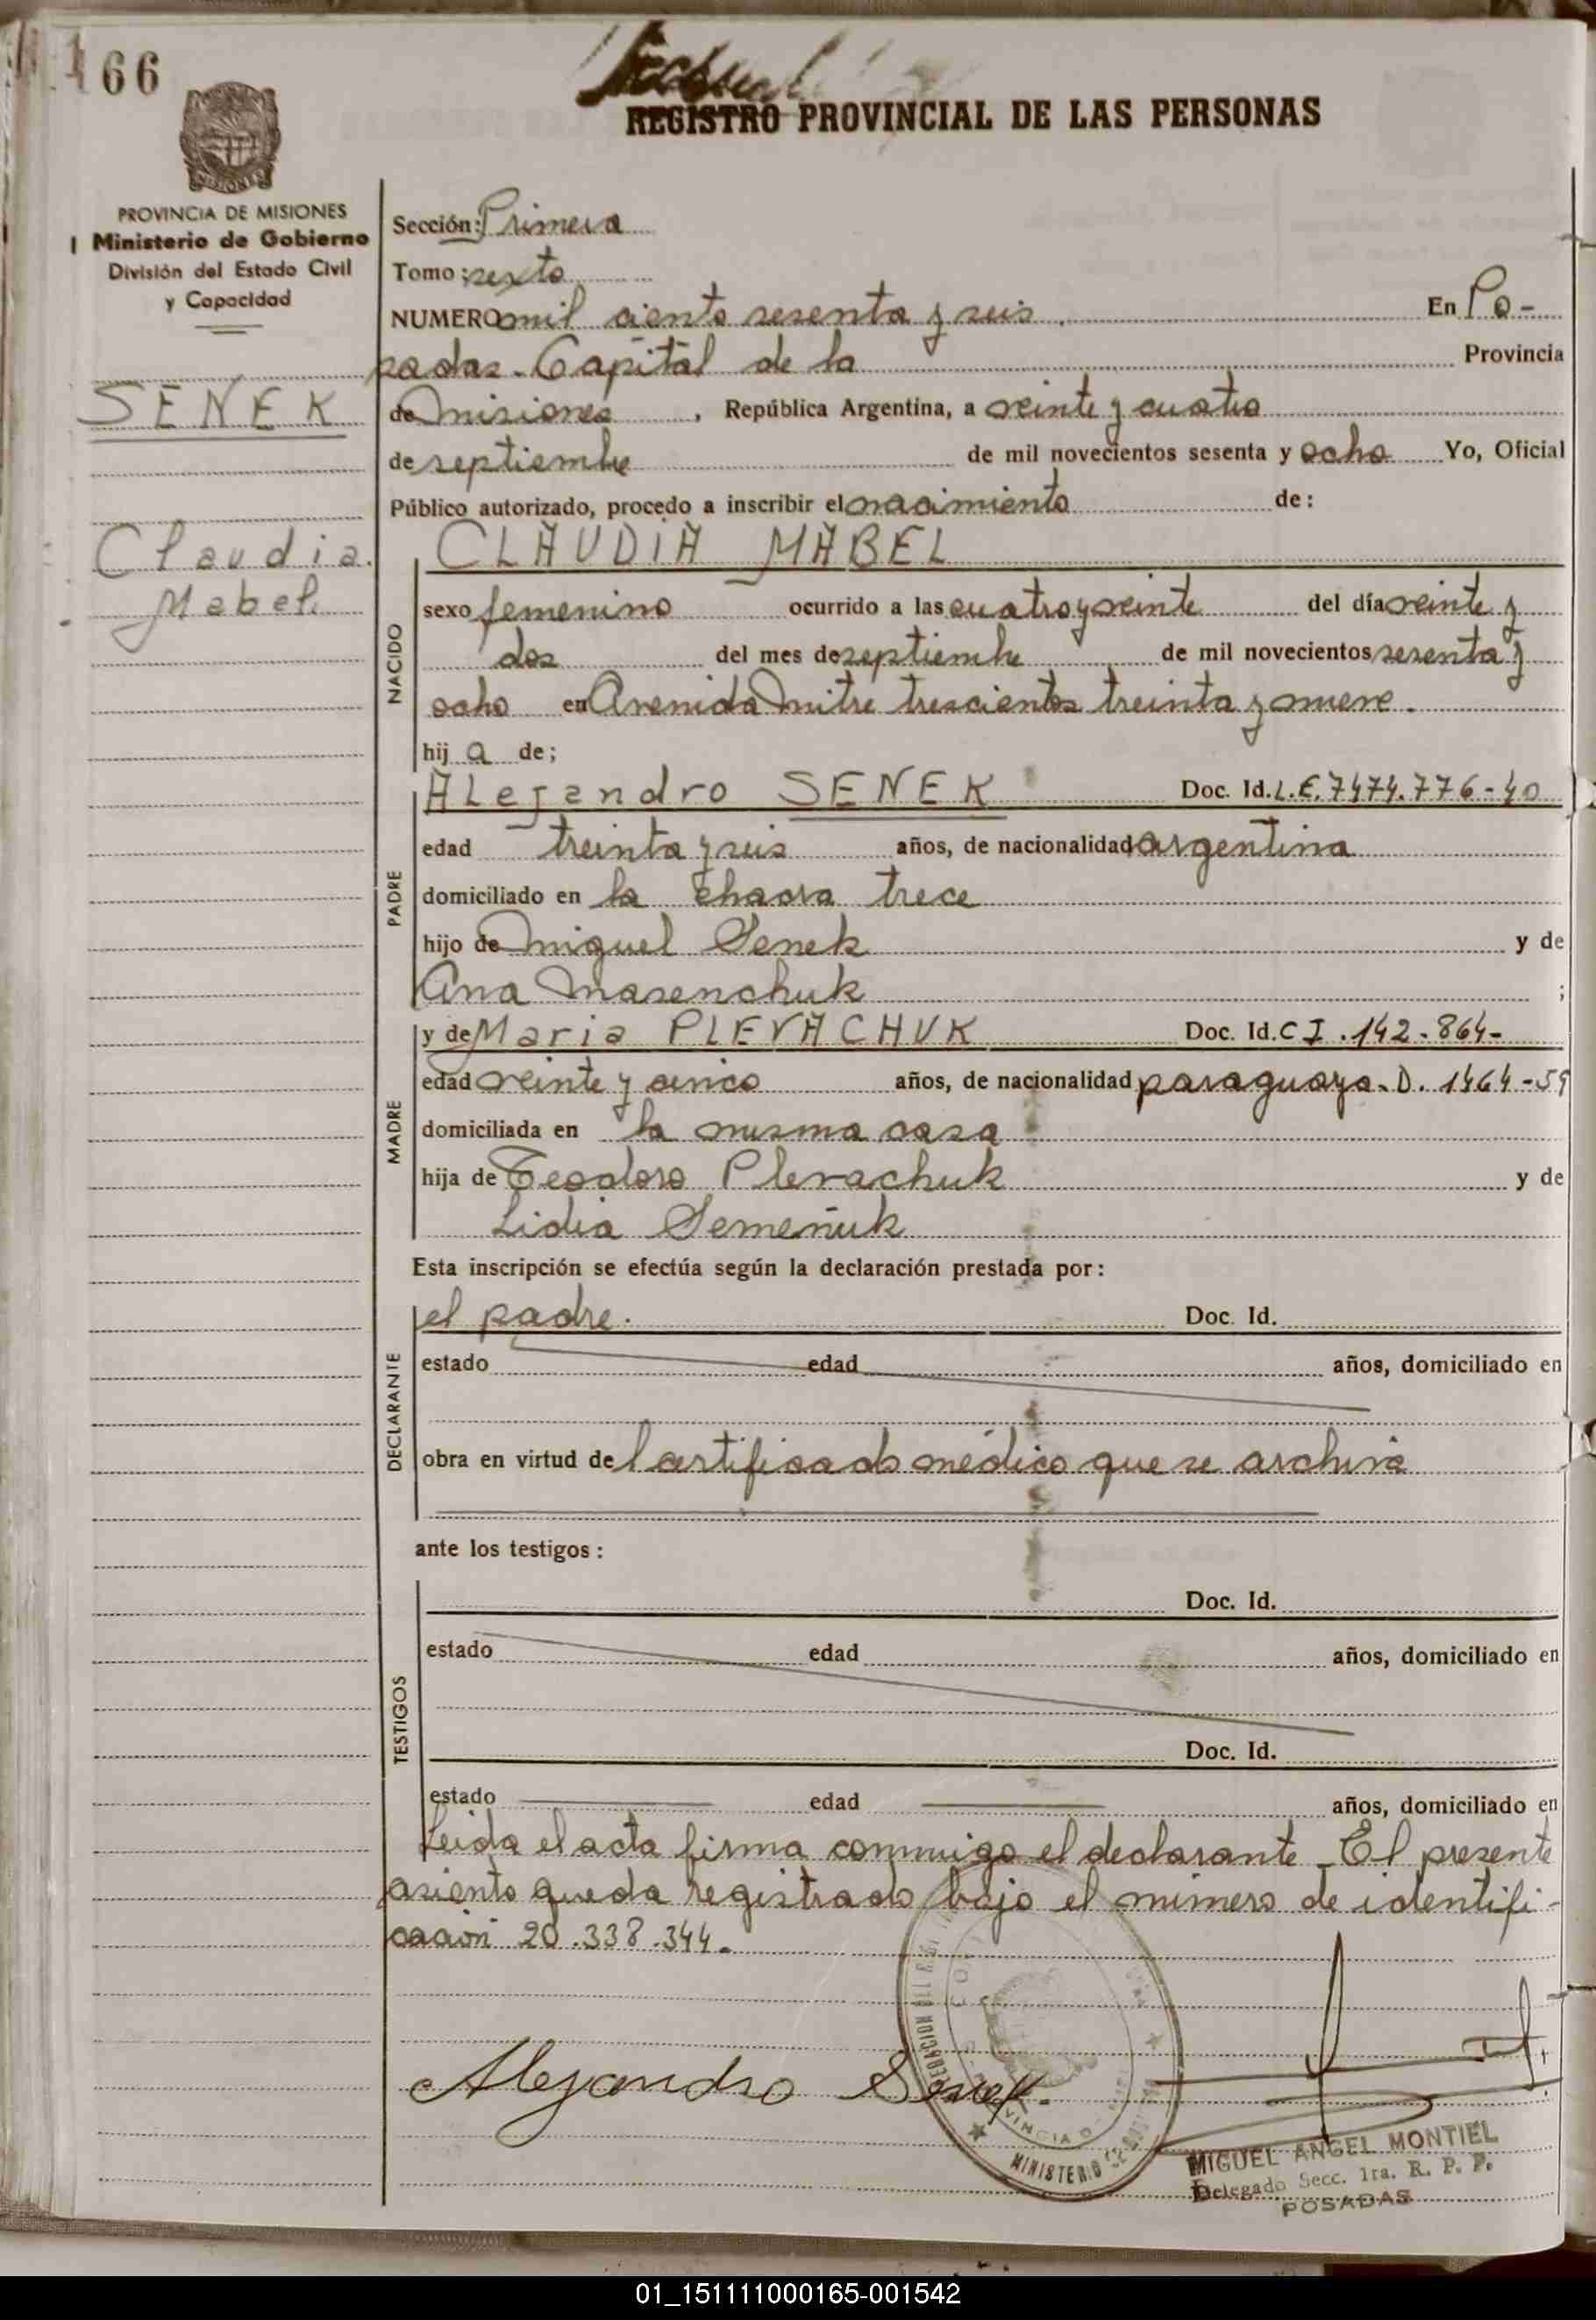 166
REGISTRO PROVINCIAL DE LAS PERSONAS
PROVINCIA DE MISIONES
Ministerio de Gobierno
División del Estado Civil
y Capacidad
SENEK
Claudia
Mabel.
Sección: Primera
Tomo: sexto
NUMERO mil ciento sesenta y seis . En Po-
sadas. Capital de la Provincia
de Misiones, República Argentina, a veinte y cuatro
de septiembre de mil novecientos sesenta y ocho Yo, Oficial
Público autorizado, procedo a inscribir el nacimiento de:
CLAUDIA MABEL
NACIDO
sexo femenino ocurrido a las cuatro y veinte del día veinte y
dos del mes de septiembre de mil novecientos sesenta y
ocho en Avenida Mitre trescientos treinta y nueve.
hij a de;
PADRE
Alejandro SENEK Doc. Id. L.E. 7474.776-40
edad treinta y seis años, de nacionalidad argentina
domiciliado en la chacra trece
hijo de Miguel Senek y de
Ana Masenchuk ;
MADRE
y de Maria PLEVACHUK Doc. Id. C I .142-864-
edad veinte y cinco años, de nacionalidad paraguaya. D. 1464-59
domiciliada en la misma casa
hija de Teodoro Plevachuk y de
Lidia Semeñuk
Esta inscripción se efectúa según la declaración prestada por:
DECLARANTE
el padre. Doc. Id.
estado edad años, domiciliado en
obra en virtud del certificado médico que se archiva
ante los testigos:
TESTIGOS
Doc. Id.
estado edad años, domiciliado en
Doc. Id.
estado edad años, domiciliado en
Leida el acta firma conmigo el declarante. El presente
asiento queda registrado bajo el número de identifi-
cación 20.338.344.
Alejandro Senek.
MINISTERIO
MIGUEL ANGEL MONTIEL
Delegado Secc. 1ra. R. P. P.
POSADAS
01_151111000165-001542